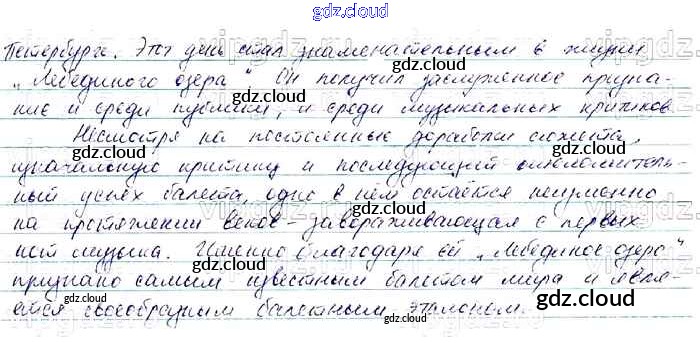 gdz.cloud
Петербурге. Этот день стал знаменательным в жизни
„Лебединого озера“ Он получил заслуженное призна-
ние и среди публики, и среди музыкальных критиков
Несмотря на постоянные доработки сюжета,
изначальную критику и последующий ошеломитель-
ный успех балета, одно в нём остаётся неизменно
на протяжении веков - завораживающая с первых
нот музыка. Именно благодаря ей „Лебединое озеро“
признано самым известным балетом мира и явля-
ется своеобразным балетным эталоном.
gdz.cloud
gdz.cloud
gdz.cloud
gdz.cloud
gdz.cloud
gdz.cloud
gdz.cloud
gdz.cloud
gdz.cloud
gdz.cloud